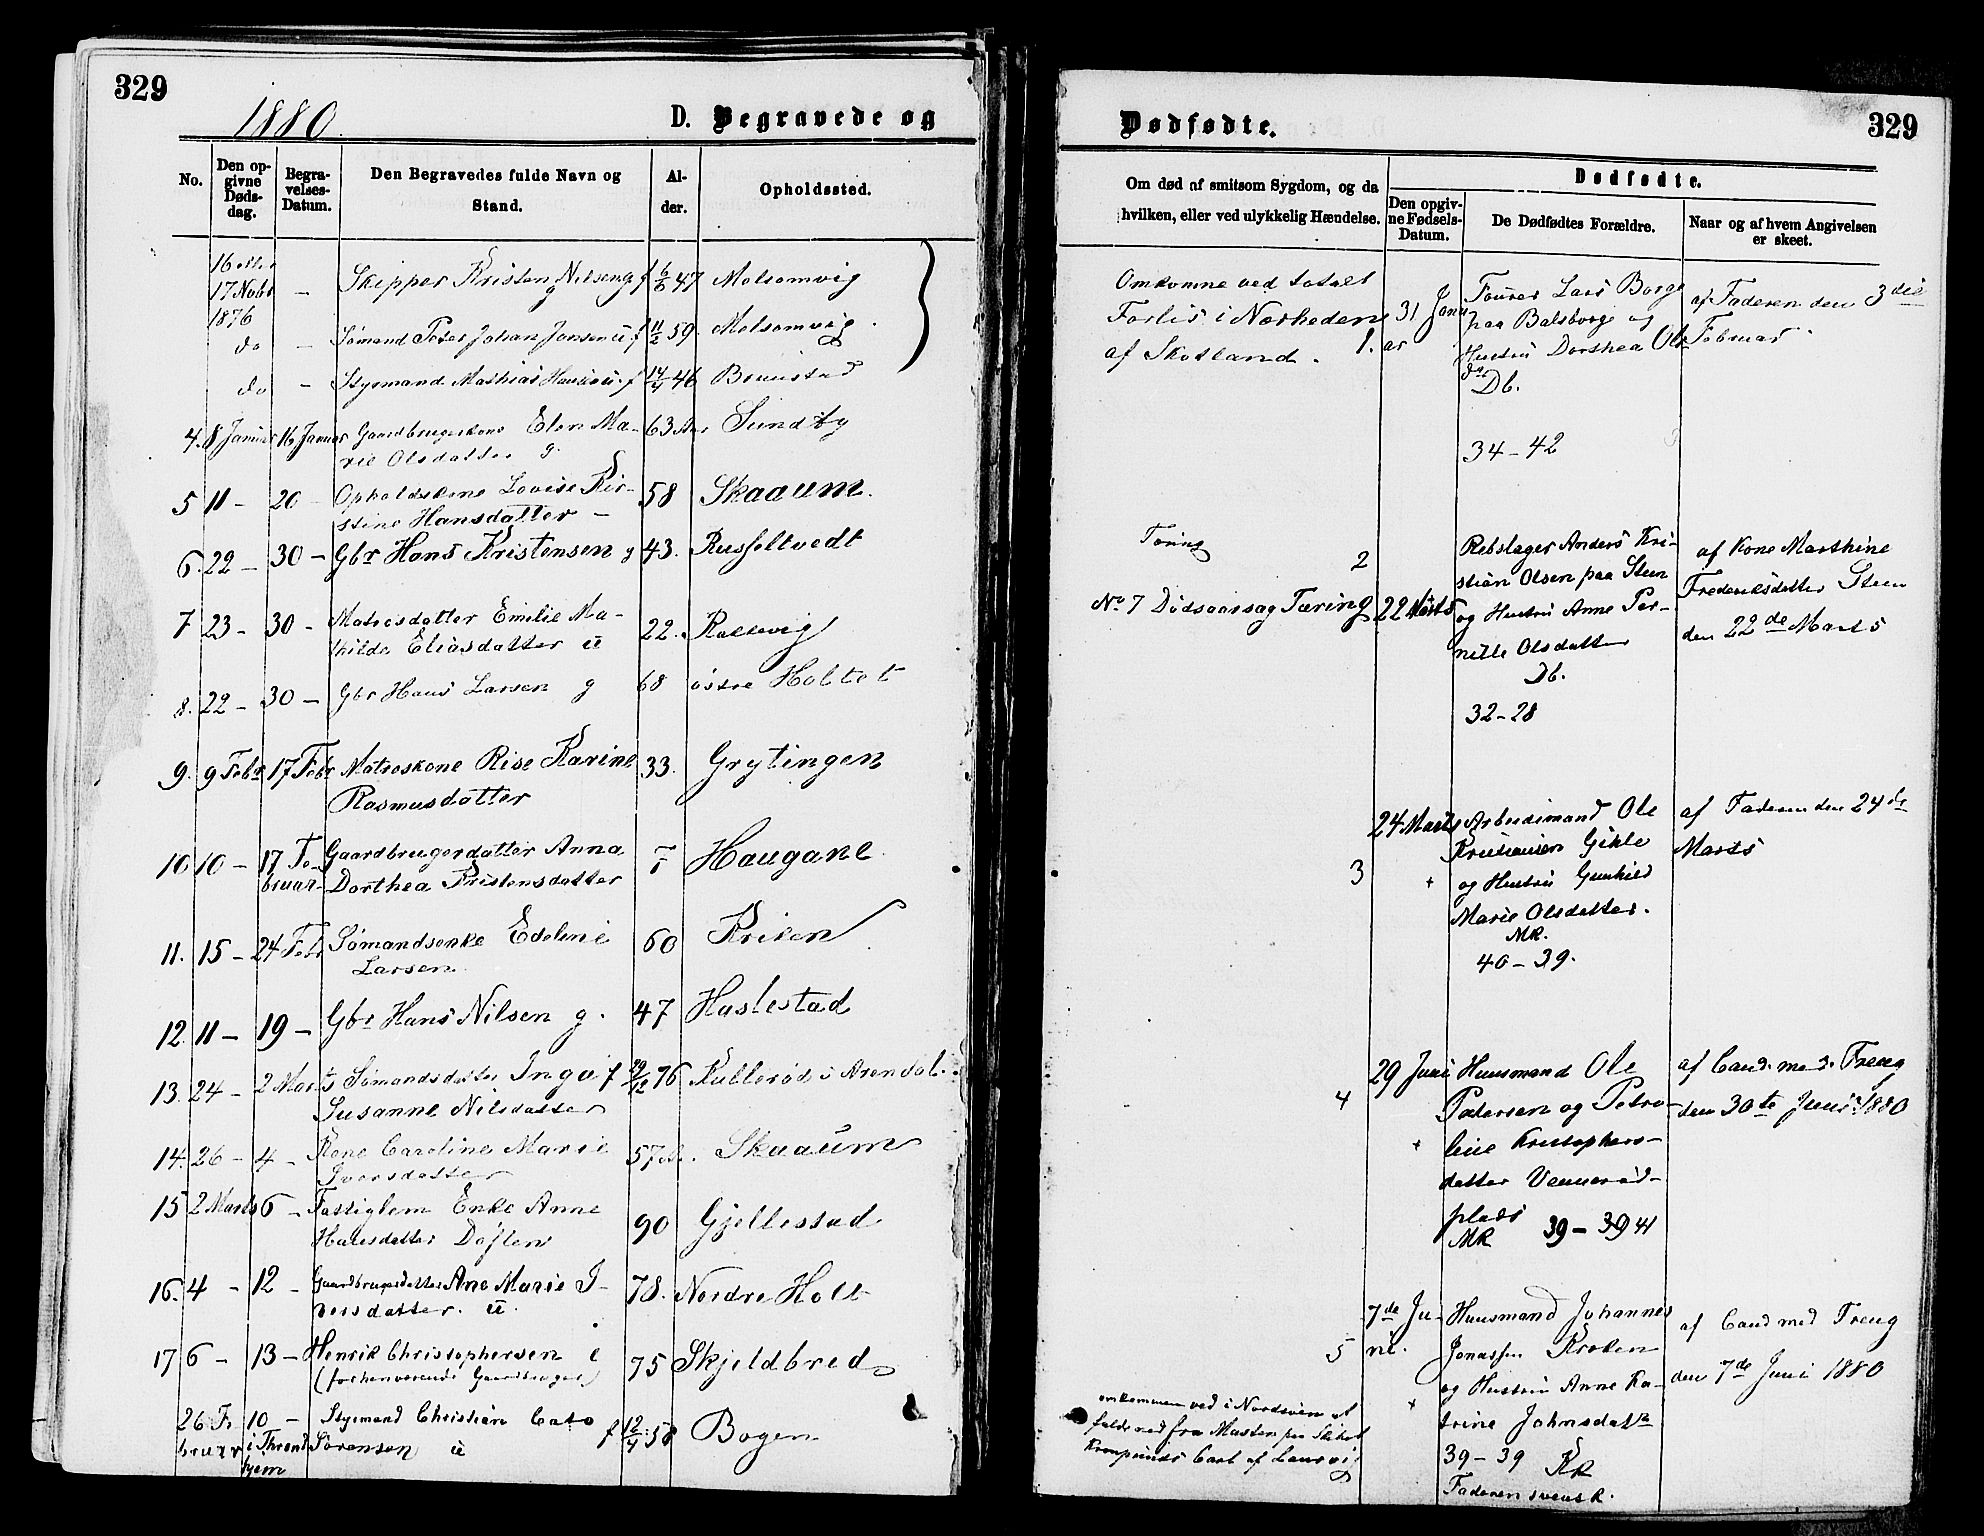 329
1880.
D. Begravede og
No.
Den opgivne Dødsdag.
Begravelses-Datum.
Den Begravedes fulde Navn og Stand.
Alder.
Opholdssted.
16 eller 17 Nobr 1876 – Skipper Kristen Nilsen g f 47 Melsomvig
do – Sømand Peter Johan Jansen u f 11/2 59 Melsomvig
do – Styrmand Mathias Hansen u. f 14/4 46 Brunstad
4. 8 Januar 16 Januar Gaardbrugerkone Elen Ma-
rie Olsdatter g. 63 Aar Sundby
5 11 – 20 – Opholdskone Lovise Kir-
stine Hansdatter – 58 Skaaum.
6. 22 – 30 – Gbr Hans Kristensen g 43. Russeltvedt
7 23 – 30 – Matrosdatter Emilie Ma-
thilde Eliasdatter u 22. Rallevig
8. 22 – 30 – Gbr Hans Larsen g 68 østre Holtet
9. 9 Febr 17 Febr Matroskone Rise Karine
Rasmusdatter 33. Grytingen
10 10 – 17 Fe-
bruar – Gaardbrugerdatter Anna
Dorthea Kristensdatter Haugane
11. 15 – 24 Feb Sømandsenke Edeline
Larsen 60 Kriken
12. 11 – 19 – Gbr Hans Nilsen g. 47 Haslestad
13. 24 – 2 Marts Sømandsdatter Inga f 76 Kullerød i Arendal.
Susanne Nilsdatter
14. 26 – 4 – Kone Caroline Marie
Iversdatter 57 Skaaum
15 2 Marts 6 – Fattiglem Enke Anne
Hansdatter 90 Gjellestad
16. 4 – 12 – Gaardbrugerdatter Ane Marie I-
versdatter. u. 78. Nordre Holt
17 6 – 13 – Henrik Christophersen e
(forhenværende Gaardbruger) 75 Skjeldbred
26 Fe
bruar 10 –
i Thrond
hjem Styrmand Christian Cato
Sørensen u f 12/4 58 Bogen
Dødfødte.
329
Om død af smitsom Sygdom, og da
hvilken, eller ved ulykkelig Hændelse.
Dødfødte.
Den opgivne Fødsels-Datum.
De Dødfødtes Forældre.
Naar og af hvem Angivelsen er skeet.
Omkomne ved totalt
Forlis i Nærheden
af Skotland.
1. 31 Janu
ar
Lars Borge
paa Balsborge og
Hustru Dorthea Ols
dr
Db.
34 – 42
af Faderen den 3die
Februar
Tæring
No 7 Dødsaarsag Tæring
2
22 Marts
Rebslager Anders Kri-
stian Olsen paa Steen
og Hustru Anne Per-
nille Olsdatter
Db.
32 – 28
af Kone Marthine
Frederiksdatter Steen
den 22de Marts
3
24 Marts
+
Arbeidsmand Ole
Kristiansen Gikle
og Hustru Gunhild
Marie Olsdatter.
MK.
40 – 39.
af Faderen den 24de
Marts
4
29 Juni
+
Huusmand Ole
Pedersen og Petro-
line Kristophers-
datter Vennerød-
plads
MK 39 – 39 41
af Cand. med. Treng
den 30te Juni 1880
5
7de Ju-
ni.
+
Huusmand Johannes
Jonassen Kroken
og Hustru Anne Ka-
trine Johnsdatr
39 – 39 KK
Faderen svensk.
af Cand med Treng
den 7de Juni 1880
omkommen ved i Nordsøen at
falde ned fra Masten paa Skibet
Kronprinds Carl af Laurvig